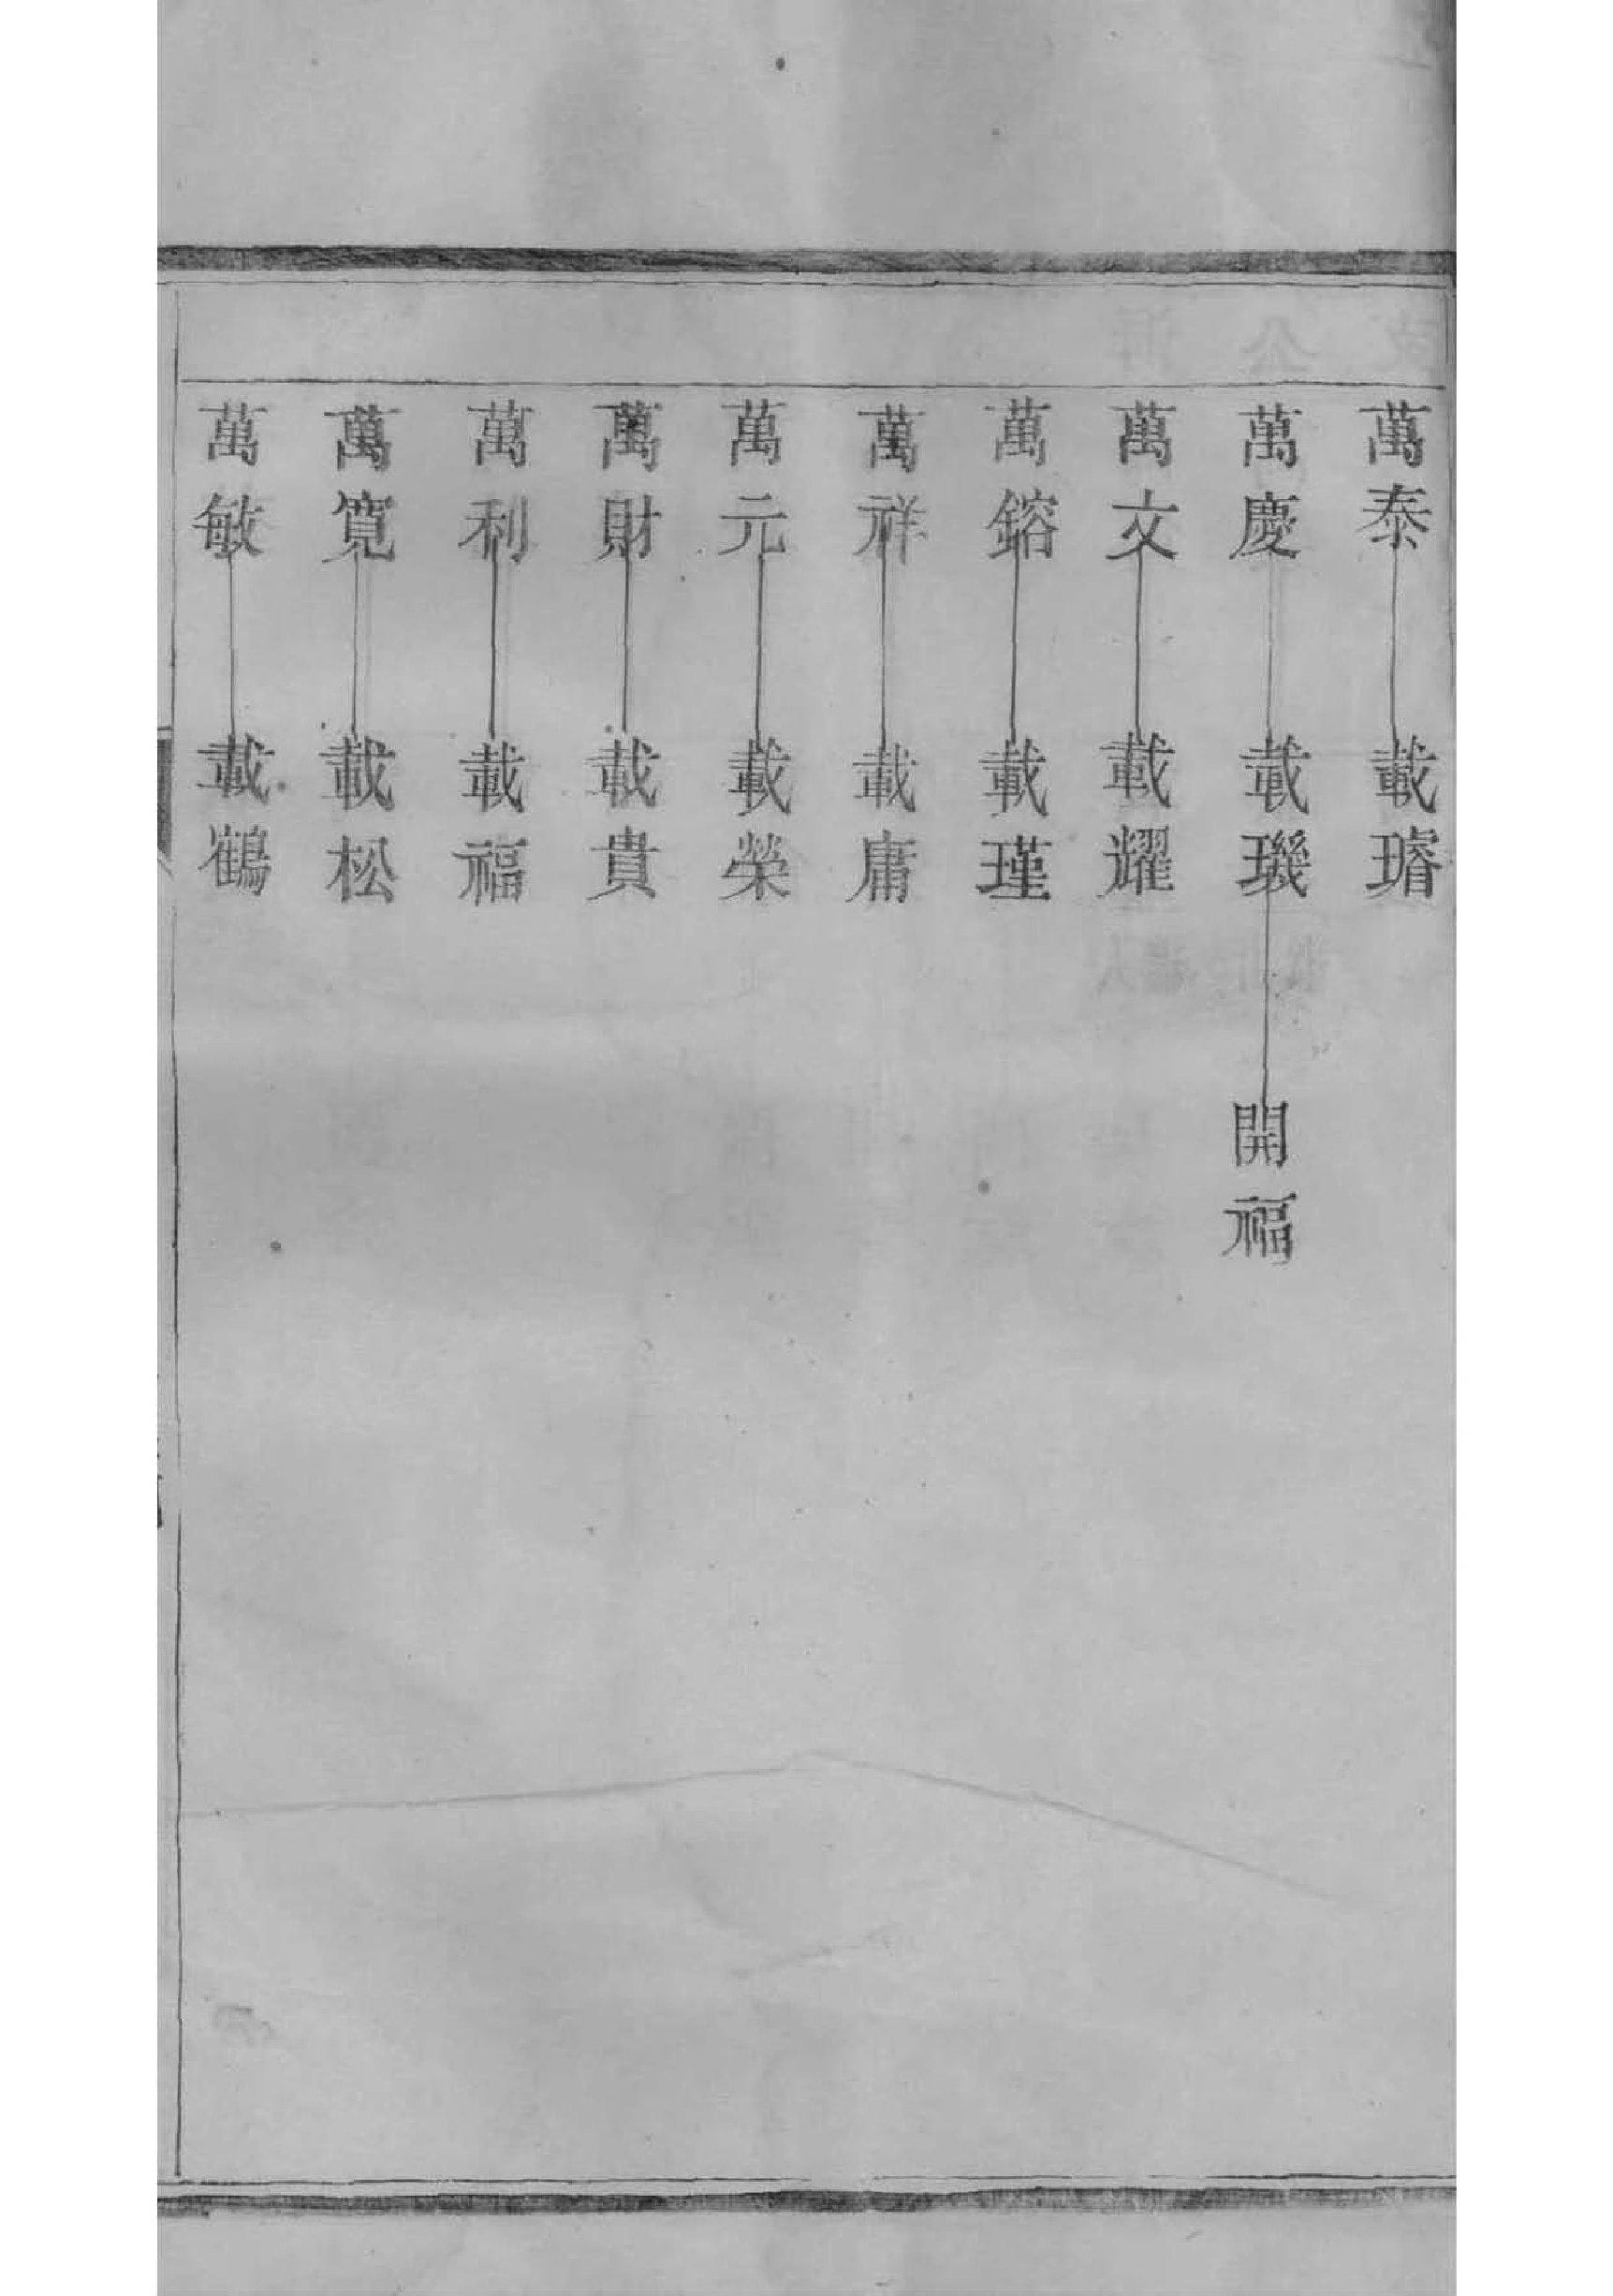 萬泰 載璿
萬慶 載璣 開福
萬文 載耀
萬鎔 載瑾
萬祥 載庸
萬元 載榮
萬財 載貴
萬利 載福
萬寬 載松
萬敏 載鶴